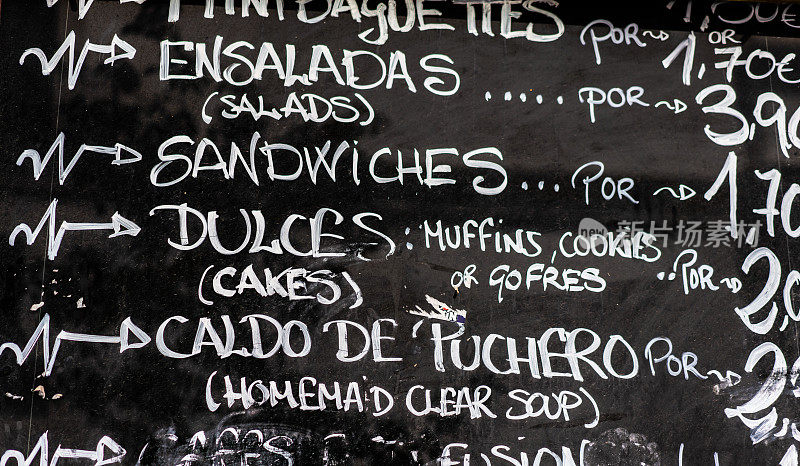 MINIBAGUETTES por → 1,50€
or
ENSALADAS ..... por → 1,70€
(SALADS) 3,90
SANDWICHES ... por → 1,70
DULCES: MUFFINS, COOKIES
(CAKES) or GOFRES .. Por → 2,0
CALDO DE PUCHERO Por → 2,
(HOMEMAID CLEAR SOUP)
FUSION
new 特写图片素材